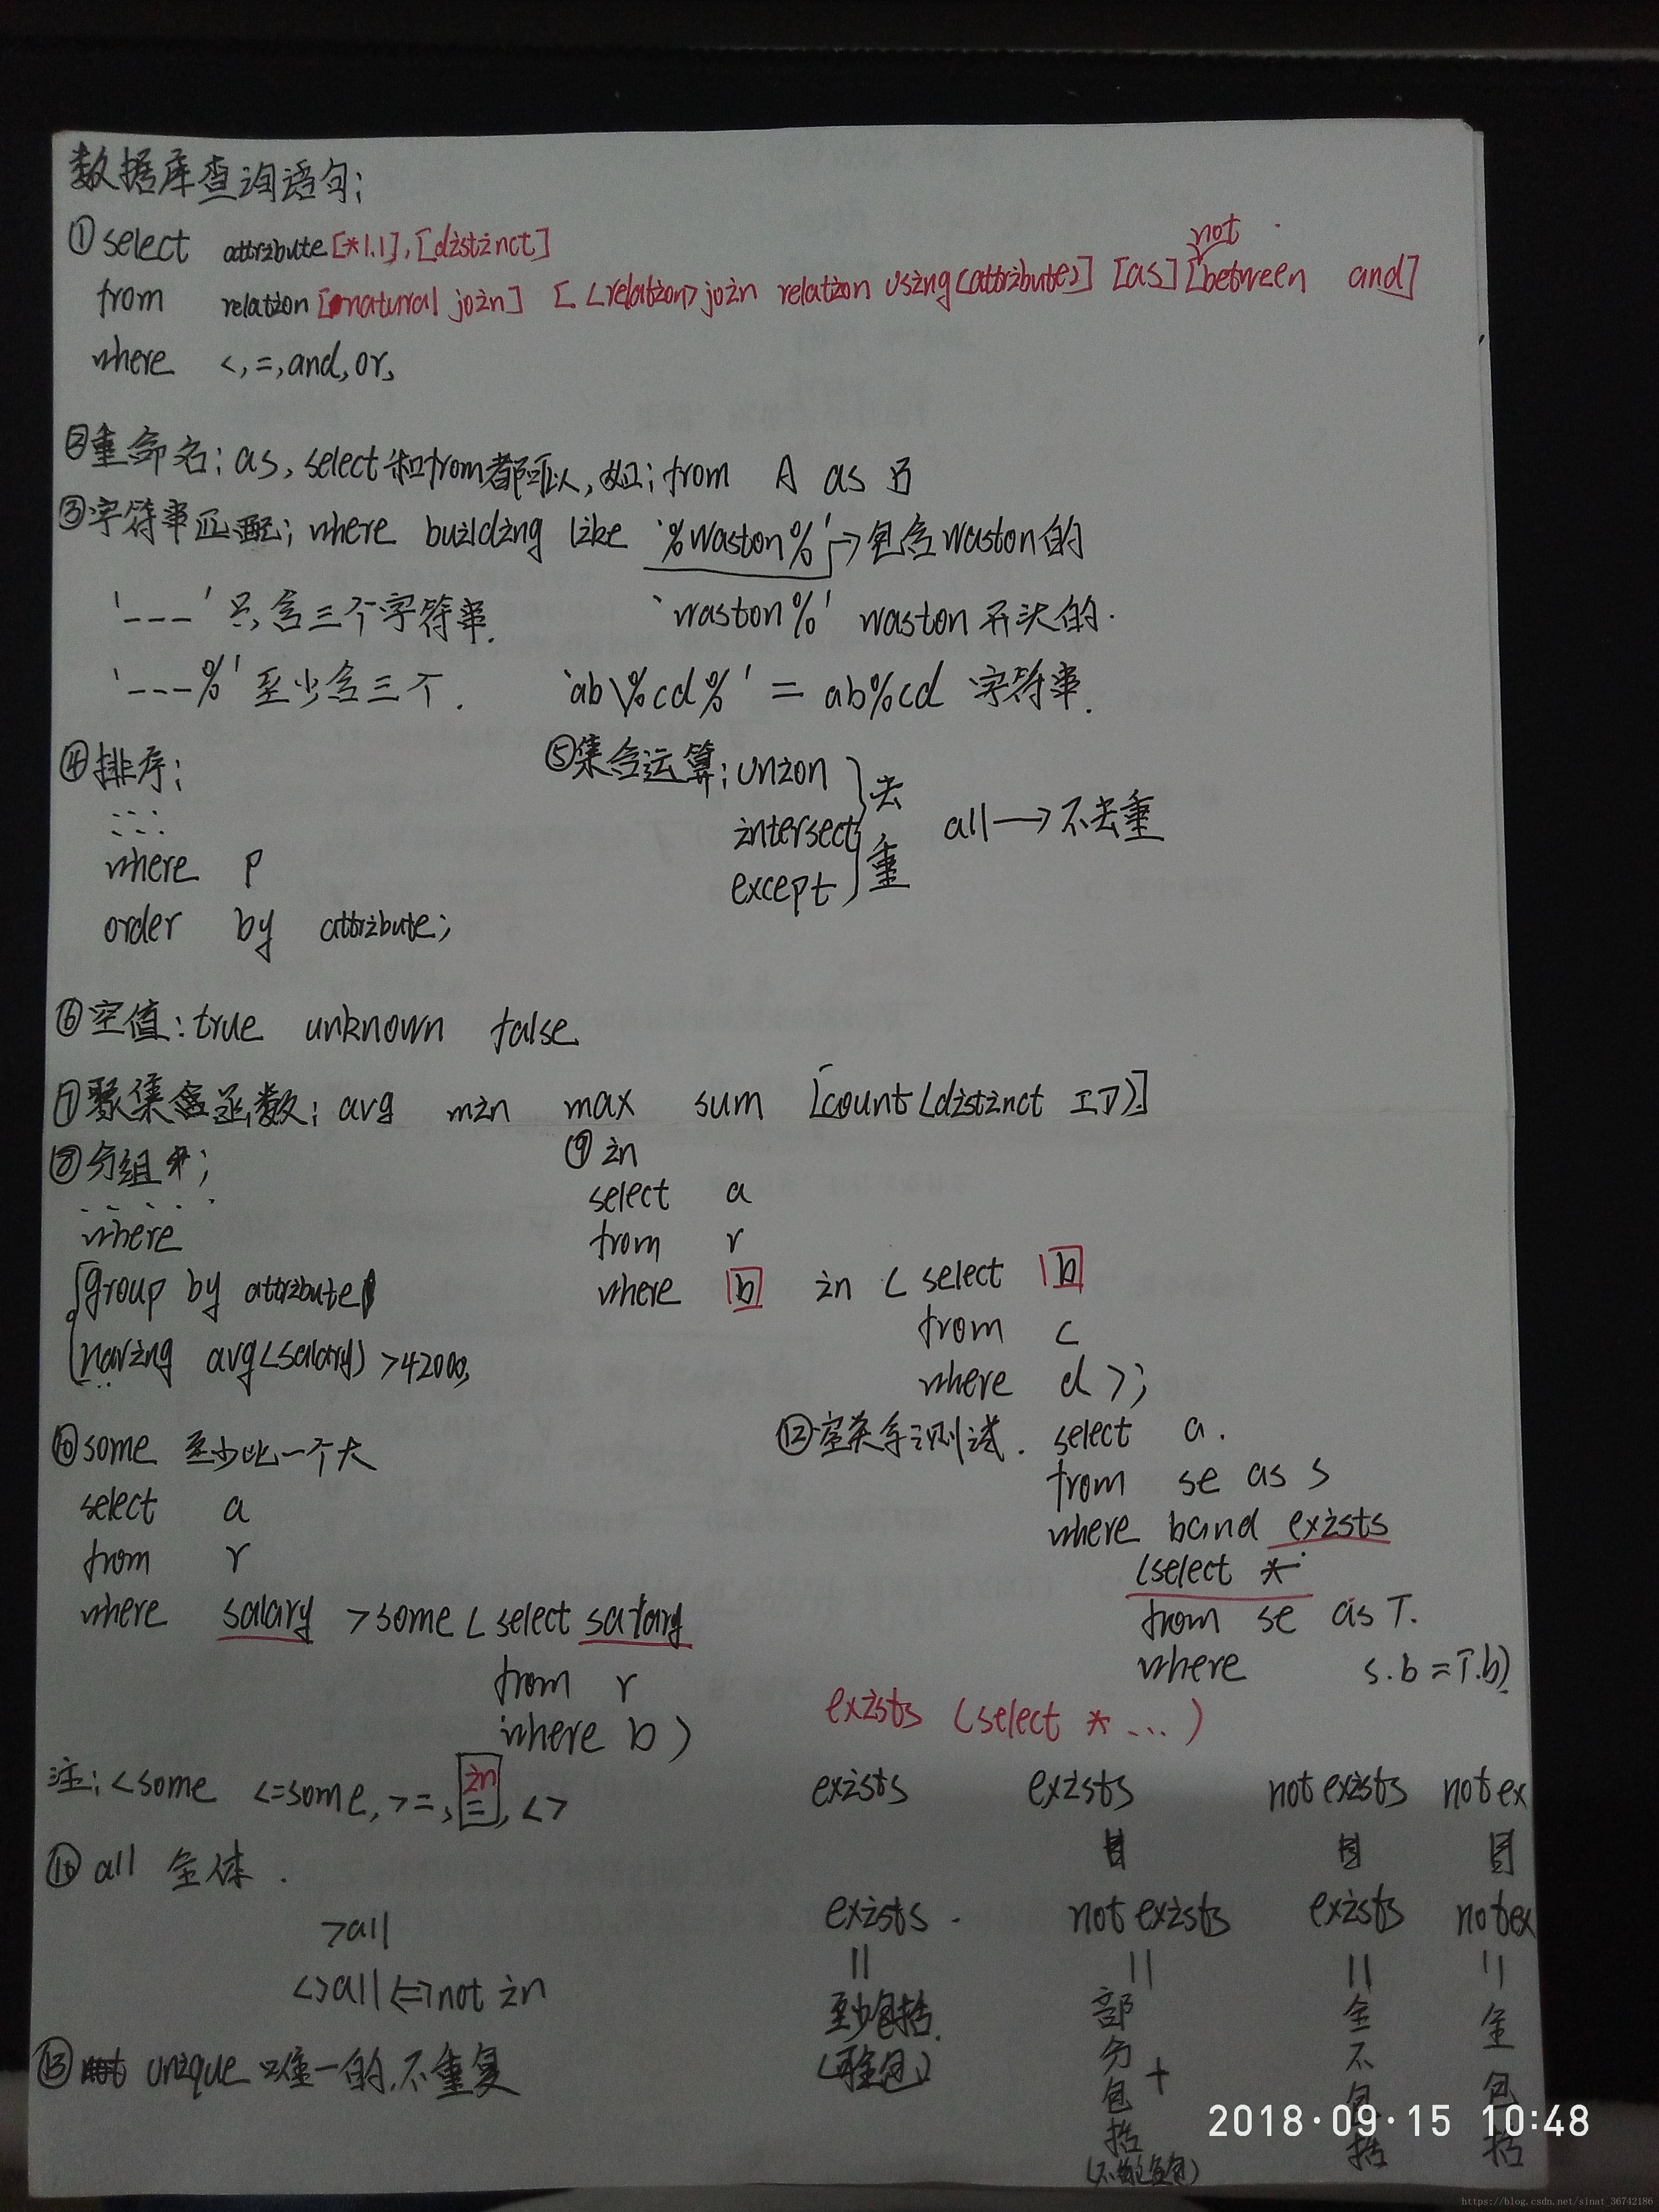 数据库查询语句:
①select attribute[*1.1],[distinct]
from relation[natural join] [<relation>join relation using(attribute)] [as] [not between and]
where <,=,and,or,
②重命名:as,select和from都可以,如:from A as B
③字符串匹配:where building like '%Waston%'→包含Waston的
'---'只含三个字符串. 'waston%' waston开头的.
'---%'至少含三个. 'ab\%cd%' = ab%cd 字符串.
④排序: ⑤集合运算:union
intersect 去重 all→不去重
where P except
order by attribute;
⑥空值:true unknown false
⑦聚集函数:avg min max sum [count(distinct ID)]
⑧分组: ⑨in
select a
where from r
group by attribute where b in (select b
having avg(salary)>42000, from c
where d);
⑩some 至少比一个大 ⑫空关系测试. select a.
select a from se as s
from r where b and exists
(select *
where salary >some (select salary from se as T.
from r where s.b=T.b)
where b) exists (select * ...)
注:<some <=some,>=,in =,<> exists exists not exists not ex
all 全体.
>all exists. not exists exists notex
<>all<=>not in = = = =
至少包括. 部分包括 全不包括 全包括
⑬unique 唯一的,不重复 +
2018·09·15 10:48
https://blog.csdn.net/sinat_36742186